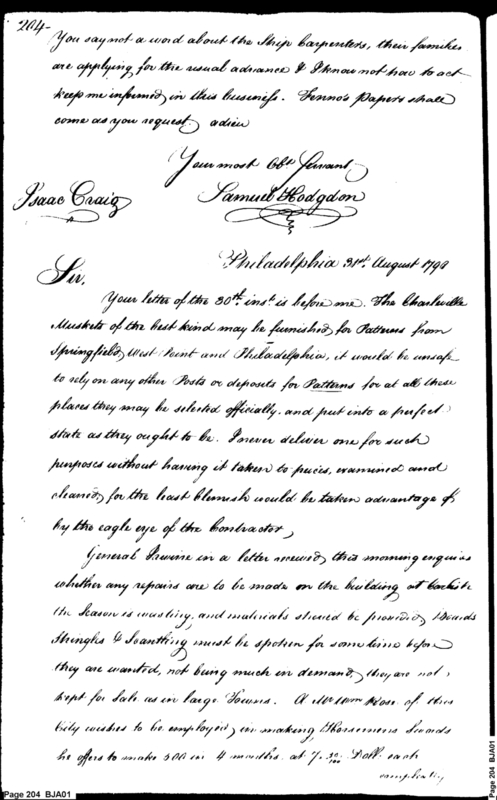 204-
You say not a word about the Ship Carpenters, their families
are applying for the usual advance & I know not how to act
keep me informed in this business. Fenno's Papers shall
come as you request, adieu
Your most Obt Servant
Isaac Craig
Samuel Hodgdon
Philadelphia 31st August 1798
Sir,
Your letter of the 30th inst is before me. The Charleville
Muskets of the best kind may be furnished, for Patterns from
Springfield, West Point and Philadelphia, it would be unsafe
to rely on any other Posts or deposits for Patterns for at all these
places they may be selected officially and put into a perfect
state as they ought to be. I never deliver one for such
purposes without having it taken to pieces, examined and
cleaned, for the least blemish would be taken advantage of
by the eagle eye of the Contractor,
General Irwine in a letter received, this morning enquires
whether any repairs are to be made on the building at Carlisle
the Season is wasting, and materials should be provided, Boards
Shingles & Scantling must be spoken for some time before
they are wanted, not being much in demand, they are not
kept for Sale as in large Towns. A Mr Wm Rose of this
City wishes to be employed, in making, Horsemens Swords
he offers to make 500 in 4 months. at 7. 50/100 Dolls each
Page 204 BJA01
Page 204 BJA01